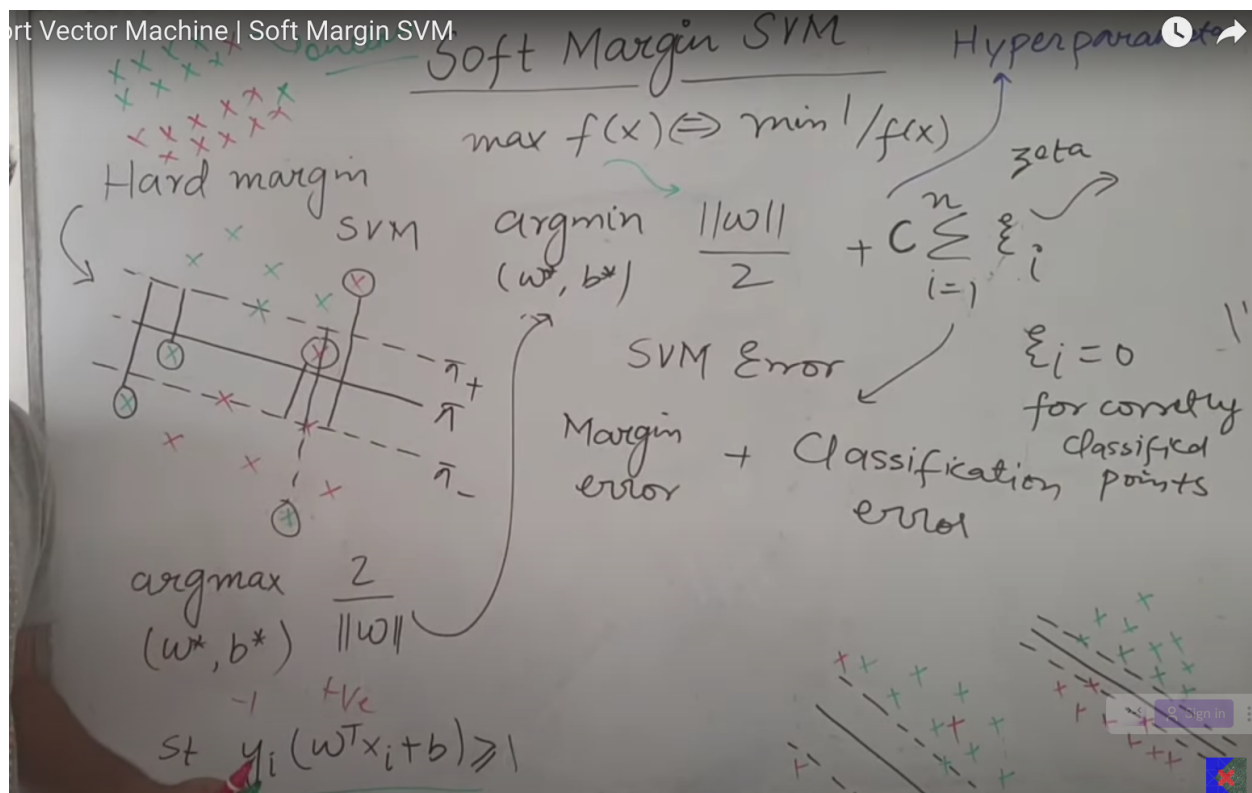 ort Vector Machine | Soft Margin SVM
Soft Margin SVM
Hyperparameter
max f(x) ⇔ min 1/f(x)
Hard margin
SVM
zeta
argmin ||w||/2 + C Σ ξi
(w*, b*)
n
i=1
π+
π
π-
SVM Error
ξi = 0
for corretly
classified
points
Margin
error
+ Classification
error
argmax 2/||w||
(w*, b*)
-1 +ve
st yi(wTxi+b) ≥ 1
Sign in